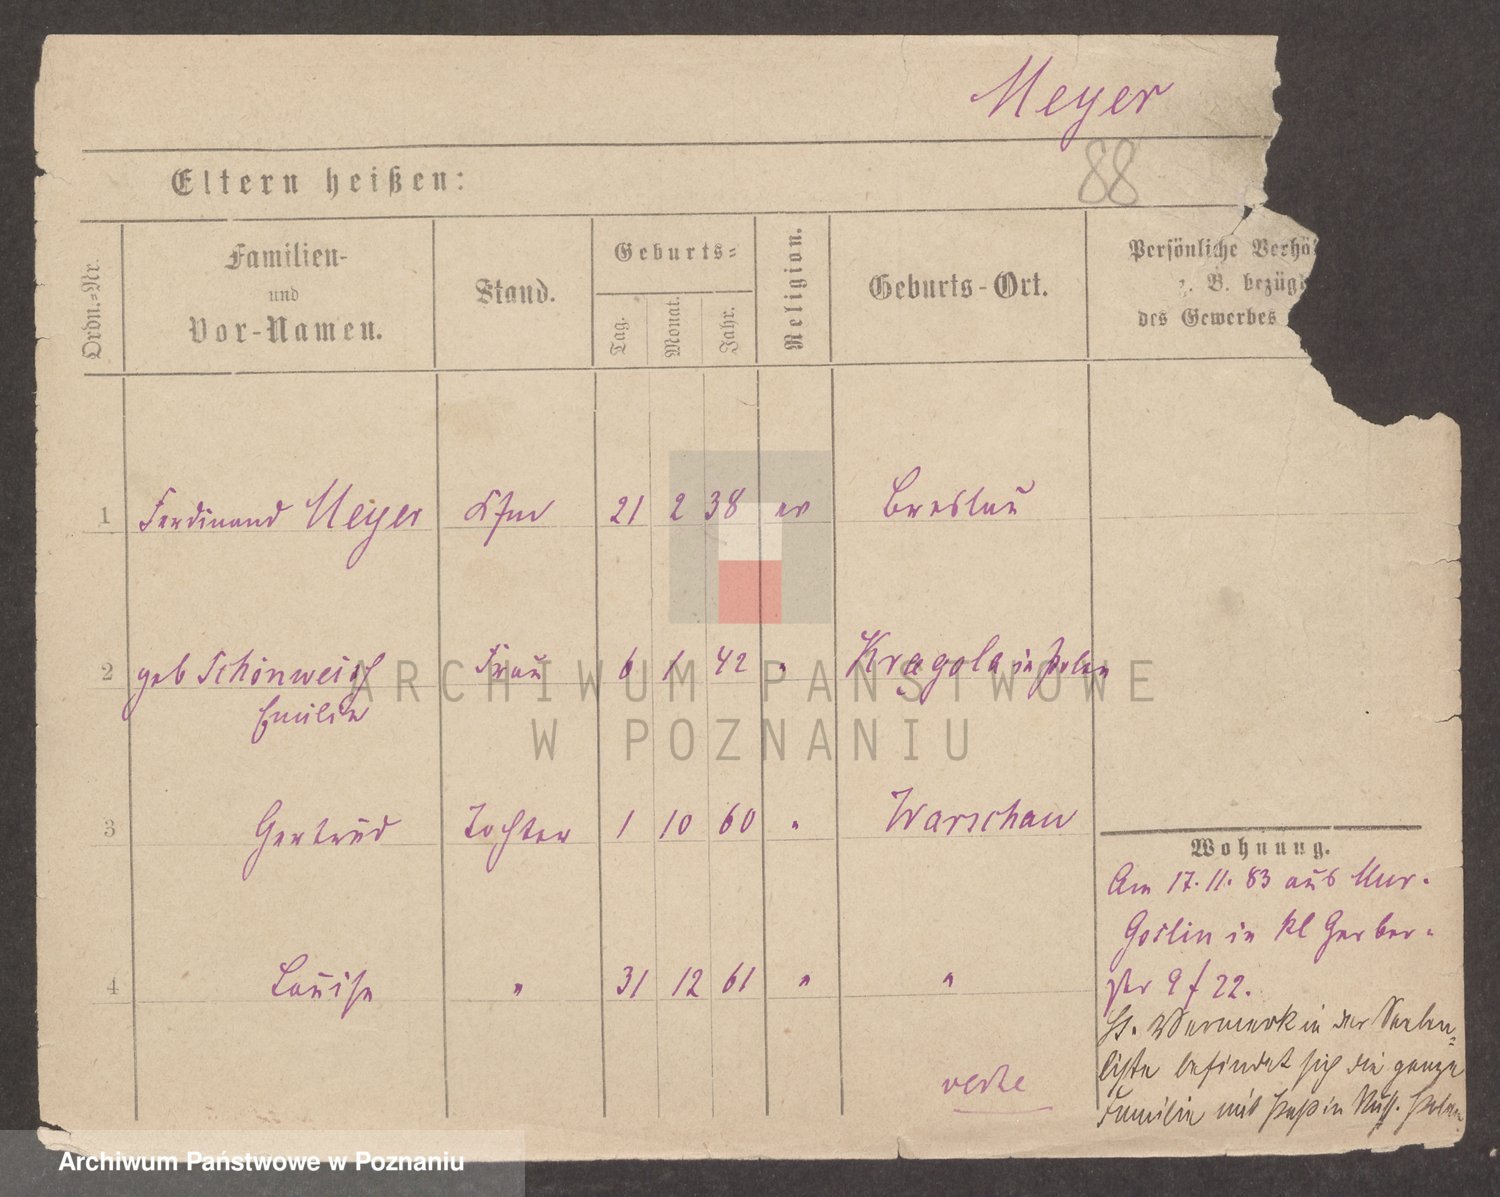 Meyer
88
Eltern heißen:
Ordn.-Nr.
Familien-
und
Vor-Namen.
Stand.
Geburts-
Tag.
Monat.
Jahr.
Religion.
Geburts-Ort.
Persönliche Verhä
z. B. bezügl
des Gewerbes
1 Ferdinand Meyer Kfm 21 2 38 ev Breslau
2 geb Schönweich Frau 6 1 42 " Kragola in Polen
Emilie
3 Gertrud Tochter 1 10 60 " Warschau
Wohnung.
4 Louise " 31 12 61 " "
Am 17.11.83 aus Mur.
Goslin in kl Gerber-
str 9 f 22.
Lt. Vermerk in der Seelen-
liste befindet sich die ganze
Familie mit Paß in Russ. Polen
ARCHIWUM PAŃSTWOWE
W POZNANIU
Archiwum Państwowe w Poznaniu